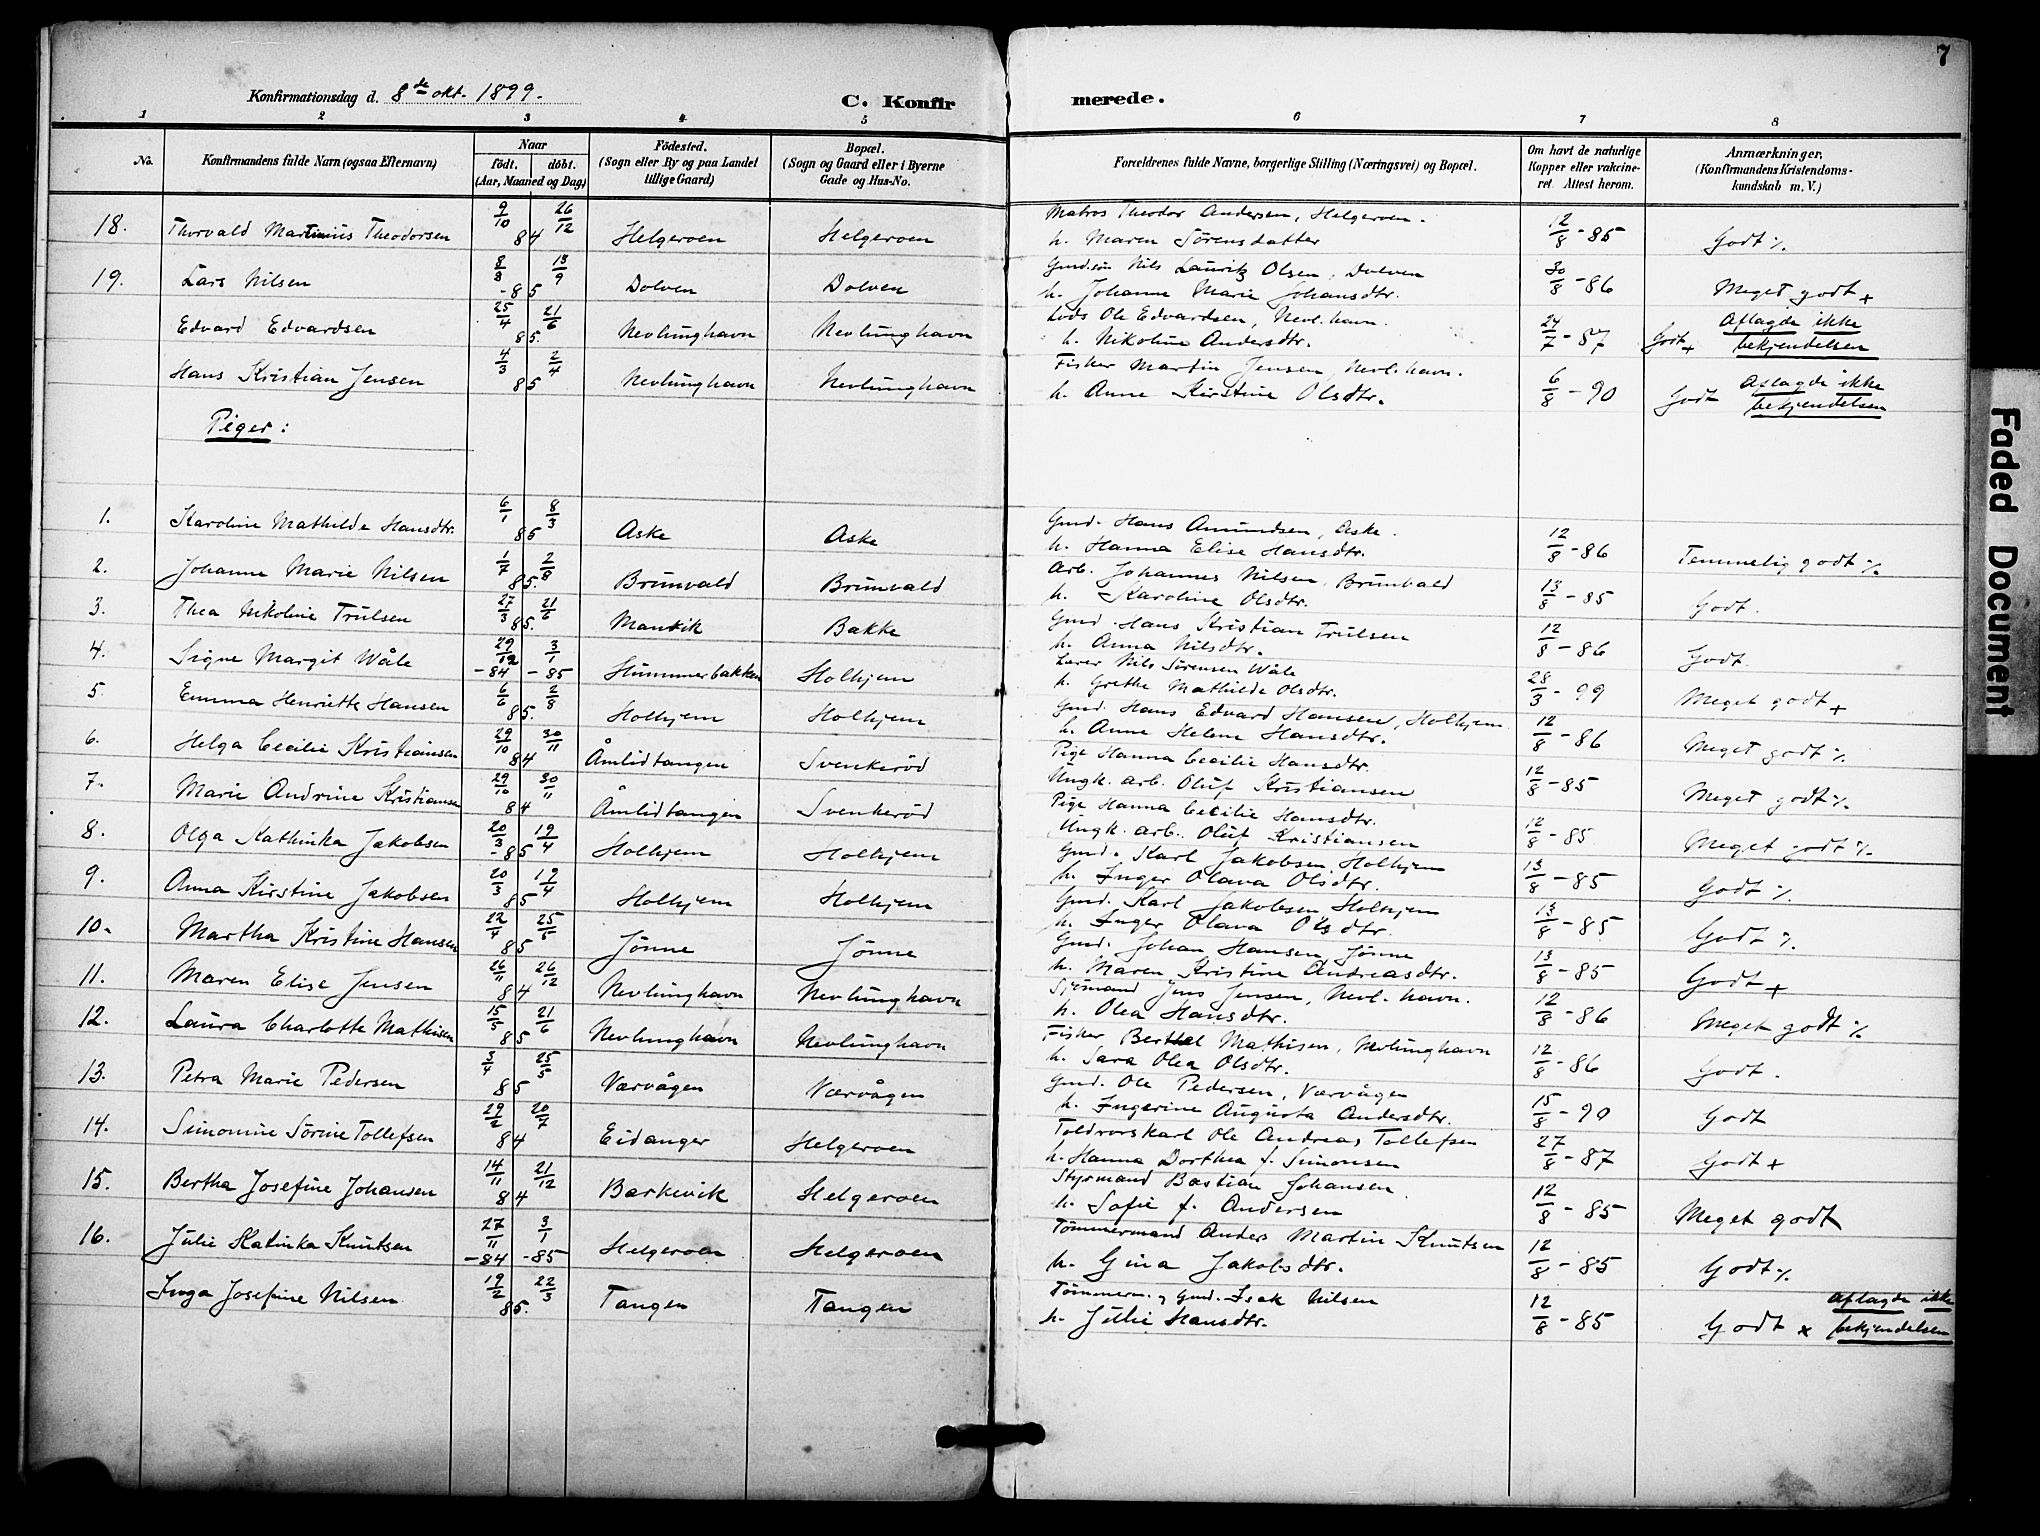 7
Konfirmationsdag d. 8de okt. 1899. C. Konfirmerede.
1 2 3 4 5 6 7 8
No. Konfirmandens fulde Navn (ogsaa Efternavn) Naar født. døbt. (Aar, Maaned og Dag) Fødested. (Sogn eller By og paa Landet tillige Gaard) Bopæl. (Sogn og Gaard eller i Byerne Gade og Hus-No. Forældrenes fulde Navne, borgerlige Stilling (Næringsvei) og Bopæl. Om havt de naturlige Kopper eller vakcineret. Attest herom. Anmærkninger. (Konfirmandens Kristendomskundskab m. V.)
18. Thorvald Martinius Theodorsen 9/10 26/12 84 Helgeroen Helgeroen Matros Theodor Andersen, Helgeroen. 12/8 - 85 Godt %
h. Maren Sörensdatter
19. Lars Nilsen 8/8 13/9 - 85 Dolven Dolven Gmd.sön Nils Lauritz Olsen, Dolven 30/8 - 86 Meget godt +
h. Johanne Marie Johansdtr.
Edvard Edvardsen 25/4 21/6 85. Nevlunghavn Nevlunghavn Lods Ole Edvardsen, Nevl.havn. 24/7 - 87 Godt + Aflagde ikke
h. Nikoline Andersdtr. bekjendelsen
Hans Kristian Jensen 4/3 2/4 85 Nevlunghavn Nevlunghavn Fisker Martin Jensen, Nevl.havn. 6/8 - 90 Godt Aflagde ikke
h. Anne Kirstine Olsdtr. bekjendelsen
Piger:
1. Karoline Mathilde Hansdtr. 6/1 8/3 85 Aske Aske Gmd. Hans Amundsen, Aske. 12/8 - 86 Temmelig godt %
h. Hanna Elise Hansdtr.
2. Johanne Marie Nilsen 1/7 2/8 85. Brunvald Brunvald Arb. Johannes Nilsen, Brunvald 13/8 - 85 Godt.
h. Karoline Olsdtr.
3. Thea Nikoline Trulsen 27/3 21/6 85. Manvik Bakke Gmd. Hans Kristian Trulsen 12/8 - 86 Godt.
h. Anna Nilsdtr.
4. Signe Margit Wåle 29/12 3/1 - 84 - 85 Hummerbakken Holhjem Lærer Nils Sörensen Wåle 28/3 - 99 Meget godt +
h. Grethe Mathilde Olsdtr.
5. Emma Henriette Hansen 6/6 2/8 85. Holhjem Holhjem Gmd. Hans Edvard Hansen, Holhjem 12/8 - 86 Meget godt %
h. Anne Helene Hansdtr.
6. Helga Cecilie Kristiansen 29/10 30/11 84 Åmlidtangen Svenkeröd Pige Hanna Cecilie Hansdtr. 12/8 - 85 Meget godt %
Ungk. arb. Oluf Kristiansen
7. Marie Andrine Kristiansen 29/10 30/11 84 Åmlidtangen Svenkeröd Pige Hanna Cecilie Hansdtr. 12/8 - 85 Meget godt %
Ungk. arb. Oluf Kristiansen
8. Olga Kathinka Jakobsen 20/3 19/4 - 85 Holhjem Holhjem Gmd. Karl Jakobsen Holhjem 13/8 - 85 Godt %
h. Inger Olava Olsdtr.
9. Anna Kirstine Jakobsen 20/3 19/4 85 Holhjem Holhjem Gmd. Karl Jakobsen Holhjem 13/8 - 85 Godt %
h. Inger Olava Olsdtr.
10. Martha Kristine Hansen 22/4 25/5 85 Jönne Jönne Gmd. Johan Hansen Jönne 13/8 - 85 Godt +
h. Maren Kristine Andreasdtr.
11. Maren Elise Jensen 26/11 26/12 84 Nevlunghavn Nevlunghavn Sjömand Jens Jensen, Nevl. havn. 12/8 - 86 Meget godt %
h. Olea Hansdtr.
12. Laura Charlotte Mathisen 15/5 21/6 85 Nevlunghavn Nevlunghavn Fisker Berthel Mathisen, Nevlunghavn 12/8 - 86 Godt.
h. Sara Olea Olsdtr.
13. Petra Marie Pedersen 3/4 25/5 85 Værvågen Værvågen Gmd. Ole Pedersen, Værvågen 15/8 - 90 Godt
h. Ingerine Augusta Andersdtr.
14. Simonine Sörine Tollefsen 29/2 20/7 84 Eidanger Helgeroen Toldrorskarl Ole Andreas Tollefsen 27/8 - 87 Godt +
h. Hanna Dorthea f. Simonsen
15. Bertha Josefine Johansen 14/11 21/12 84 Barkevik Helgeroen Styrmand Bastian Johansen. 12/8 - 85 Meget godt
h. Sofie f. Andersen
16. Julie Katinka Knutsen 27/11 3/1 - 84 - 85 Helgeroen Helgeroen Tömmermand Anders Martin Knutsen 12/8 - 85 Godt %
h. Gina Jakobsdtr.
Inga Josefine Nilsen 19/2 22/3 85. Tangen Tangen Tömmerm. og Gmd. Isak Nilsen 12/8 - 85 Godt x Aflagde ikke
h. Jullie Hansdtr. bekjendelsen
Faded Document